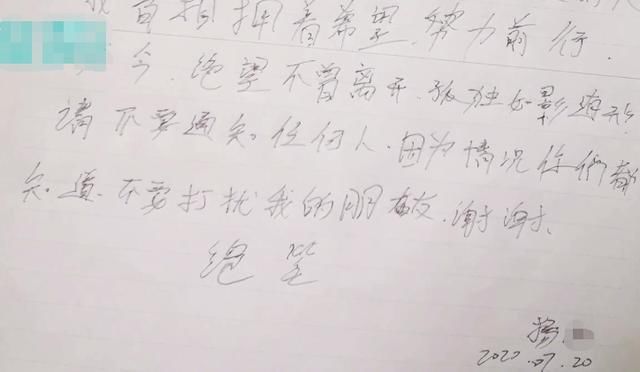 我曾拥抱着希望,努力前行.
今,绝望不曾离开.孤独如影随形
请不要通知任何人.因为情况你们都
知道.不要打扰我的朋友.谢谢.
绝笔
2020.07.20